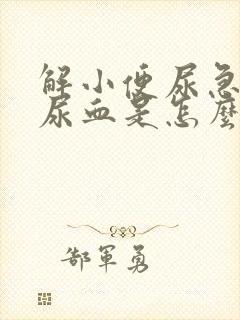 解小便尿急
尿血是怎麼
郜軍勇